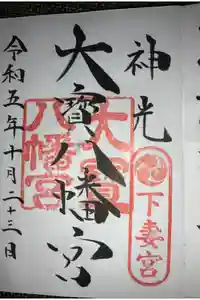 神光
大寶八幡宮
大寶
八幡宮
下妻宮
令和五年十月二十三日